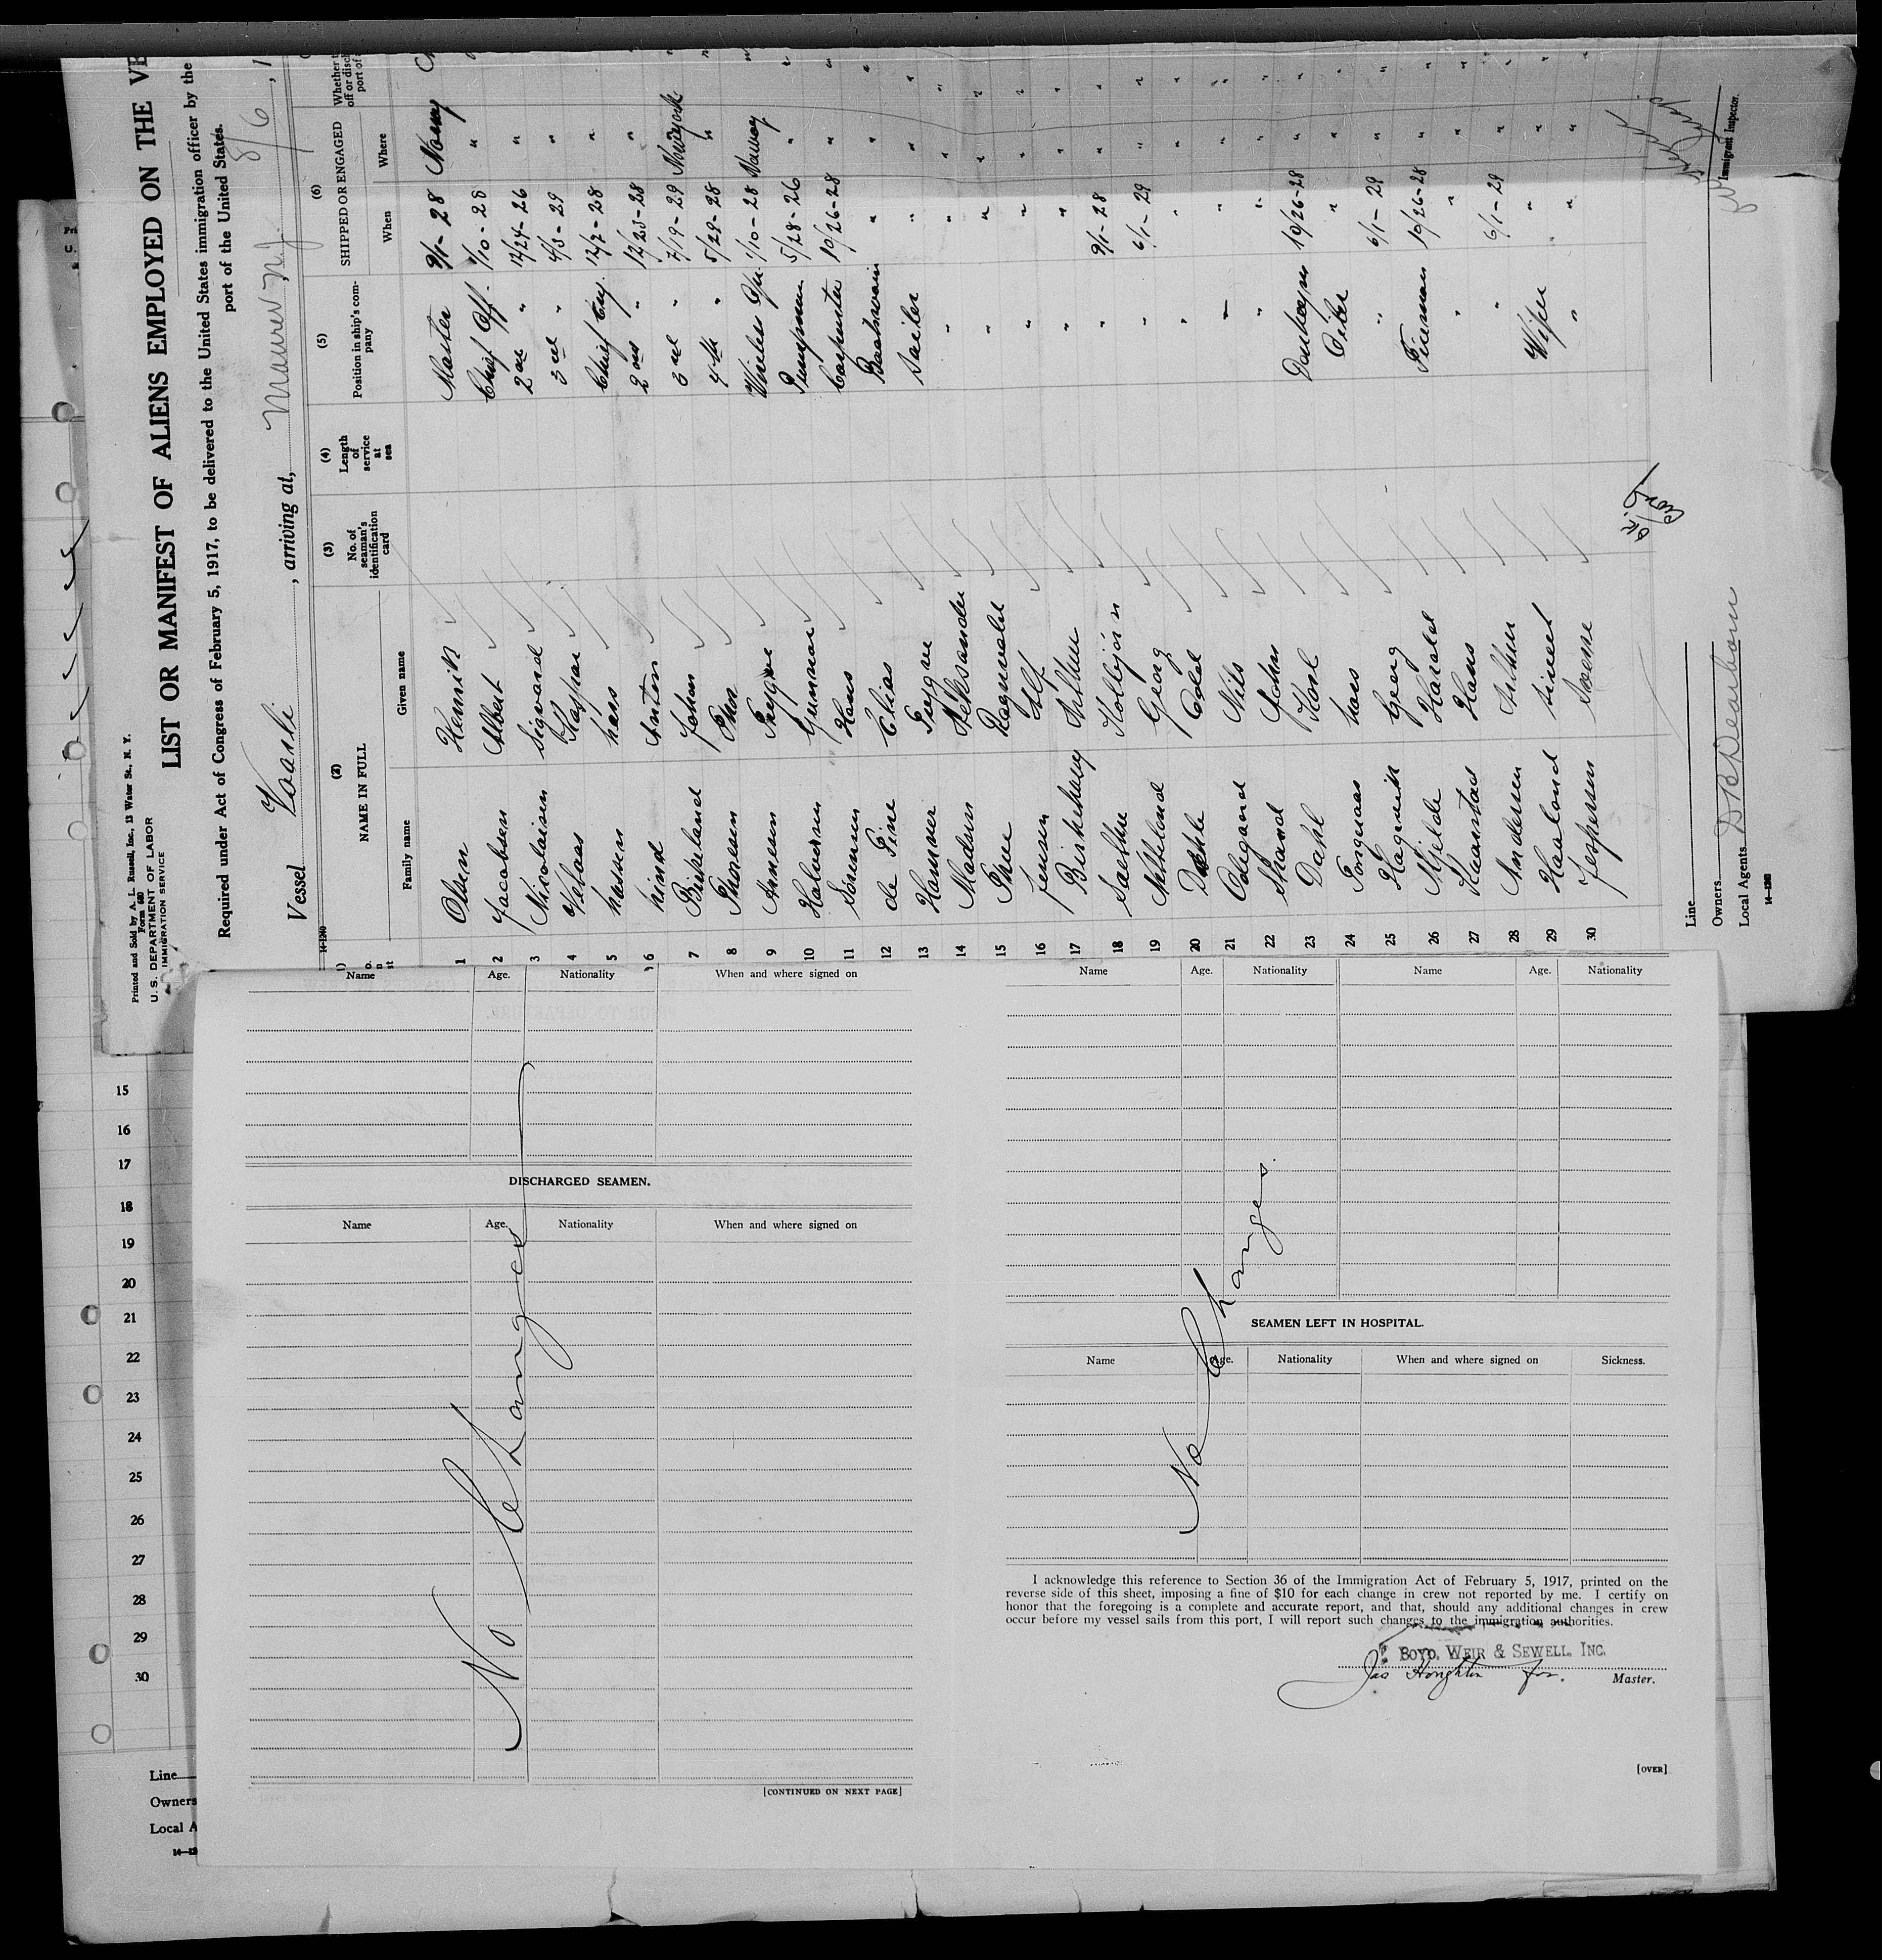 Printed and Sold by A. L. Russell, Inc., 13 Water St., N. Y.
Form 680
U. S. DEPARTMENT OF LABOR
IMMIGRATION SERVICE
LIST OR MANIFEST OF ALIENS EMPLOYED ON THE VE
Required under Act of Congress of February 5, 1917, to be delivered to the United States immigration officer by the
port of the United States.
Vessel Vaarli, arriving at, Maurer, N.J. 8/6, 1
14-1240
(2) (3) (4) (5) (6)
NAME IN FULL No. of seaman's identification card Length of service at sea Position in ship's company SHIPPED OR ENGAGED Whether
Family name Given name When Where
1 Olsen Henrik Master 9/1-28 Norway
2 Jacobsen Albert Chief Off. 1/10-28 "
3 Nicolaisen Sigvard 2nd " 12/24-26 "
4 Kaspar 3rd " 4/3-29 "
5 Lars Chief Eng. 12/2-28 "
6 Anton 2nd " 12/23-28 "
7 Johan 3rd " 7/19-29 New York
8 Thoresen Thor 4th " 5/29-28 "
9 Arnesen Trygve Wireless Opr. 1/10-28 Norway
10 Halvorsen Gunnar Pumpman 5/28-26 "
11 Sorensen Hans Carpenter 10/26-28 "
12 de Fine Elias Boatswain " "
13 Hammer Trygve Sailor " "
14 Madsen Aleksander " " "
15 Thue Ragnvald " " "
16 Jensen Alf " " "
17 Birkhaug Arthur " " "
18 Saethre Kolbjorn " 9/1-28 "
19 Georg " 6/1-29 "
20 Dahle Odd " " "
21 Odegaard Nils " " "
22 Strand John " " "
23 Dahl Karl Donkeyman 10/26-28 "
24 Lars Oiler " "
25 Hagevik Georg " 6/1-29 "
26 Mjelde Harald Fireman 10/26-28 "
27 Hans " " "
28 Andersen Arthur " 6/1-29 "
29 Haaland Sivert Wiper " "
30 Jespersen Sverre " " "
Line
Owners
Local Agents D R Dearborn
14-1240
Immigrant Inspector.
15
16
17
18
19
20
21
22
23
24
25
26
27
28
29
30
Line
Owners
Local A
Name Age. Nationality When and where signed on
DISCHARGED SEAMEN.
Name Age. Nationality When and where signed on
No Changes
[CONTINUED ON NEXT PAGE]
Name Age. Nationality Name Age. Nationality
No Changes.
SEAMEN LEFT IN HOSPITAL.
Name Age. Nationality When and where signed on Sickness.
I acknowledge this reference to Section 36 of the Immigration Act of February 5, 1917, printed on the
reverse side of this sheet, imposing a fine of $10 for each change in crew not reported by me. I certify on
honor that the foregoing is a complete and accurate report, and that, should any additional changes in crew
occur before my vessel sails from this port, I will report such changes to the immigration authorities.
BOYD, WEIR & SEWELL, INC.
Jas Houghton for. Master.
[OVER]